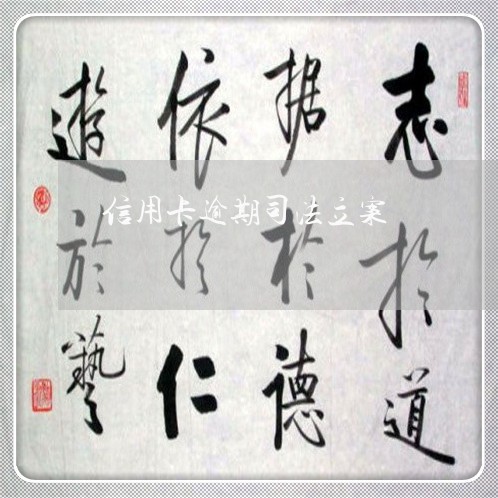 志於道
据於德
依於仁
遊於藝
信用卡逾期司法立案